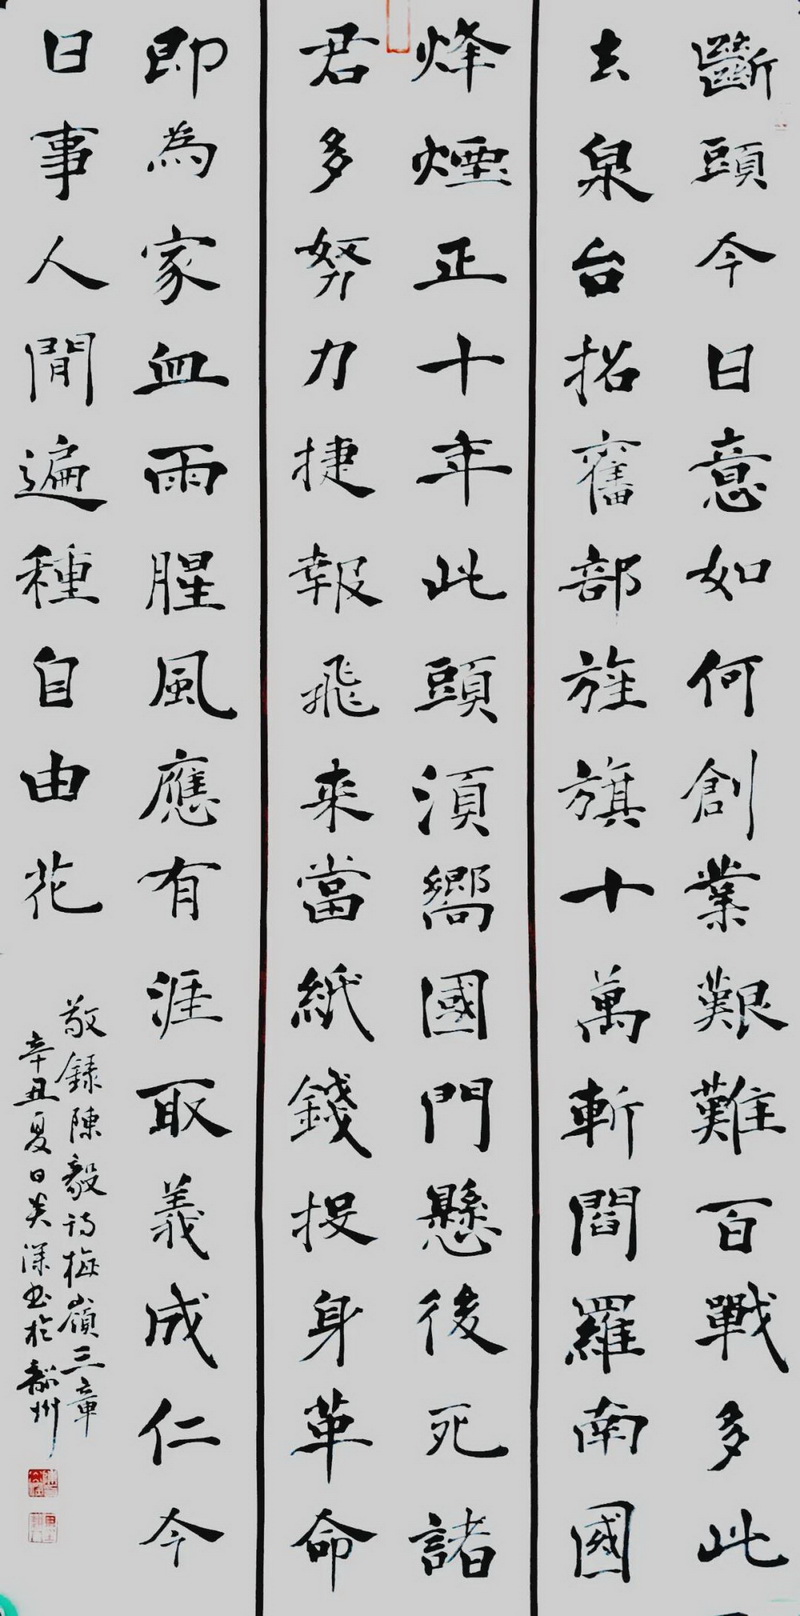 斷頭今日意如何創業艱難百戰多此
去泉台招舊部旌旗十萬斬閻羅南國
烽煙正十年此頭須嚮國門懸後死諸
君多努力捷報飛來當紙錢投身革命
即為家血雨腥風應有涯取義成仁今
日事人間遍種自由花
敬錄陳毅詩梅嶺三章
辛丑夏日炎深書於韶州